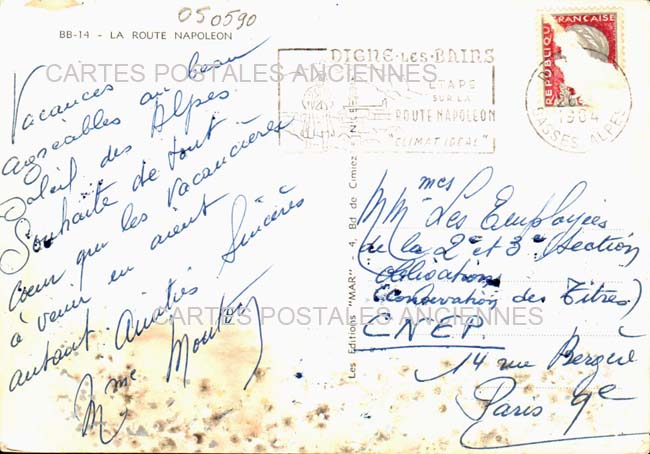 050590
BB-14 - LA ROUTE NAPOLEON
Vacances au beau
agréables au
Soleil des Alpes
Souhaite de tout
Cœur que les Vacancières
à venir en aient
autant. Amitiés Sincères
Mme
DIGNE-LES-BAINS
ETAPE
SUR LA
ROUTE NAPOLEON
"CLIMAT IDEAL"
REPUBLIQUE FRANÇAISE
1964
BASSES-ALPES
CARTES POSTALES ANCIENNES
Les Editions "MAR" - 4, Bd de Cimiez - NICE
MMmes Les Employées
de la 2e et 3e Section
Obligations
(Conservation des Titres)
C.N.E.P.
14 rue Bergère
Paris 9e
CARTES POSTALES ANCIENNES